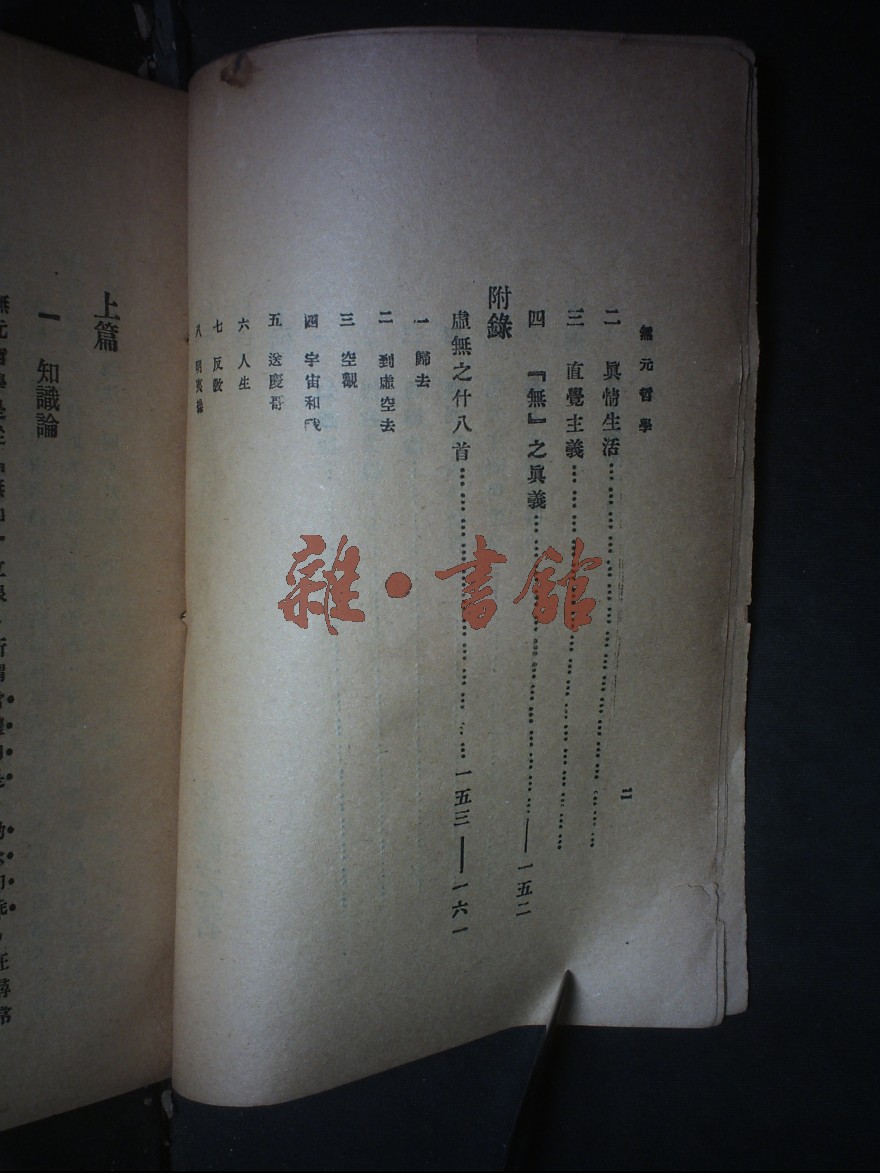 無元哲學
二
二 眞情生活……………………………………………………
三 直覺主義……………………………………………………
四 『無』之眞義……………………………………——一五二
附錄
虛無之什八首……………………………………一五三——一六一
一 歸去
二 到虛空去
三 空觀
四 宇宙和我
五 送慶哥
六 人生
七 反敎
八
雜·書館
上篇
一 知識論